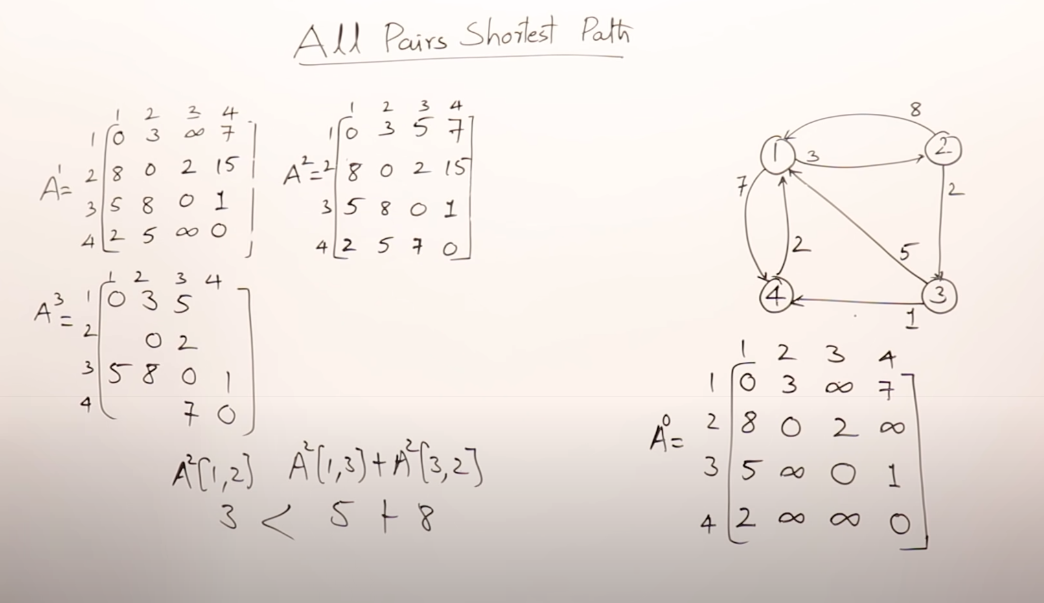 All Pairs Shortest Path
1 2 3 4
A¹= 1 0 3 ∞ 7
2 8 0 2 15
3 5 8 0 1
4 2 5 ∞ 0
1 2 3 4
A²= 1 0 3 5 7
2 8 0 2 15
3 5 8 0 1
4 2 5 7 0
1 2 3 4
A³= 1 0 3 5
2 0 2
3 5 8 0 1
4 7 0
A²[1,2] A²[1,3]+A²[3,2]
3 < 5 + 8
8
1 3 2
7 2
2 5
4 3
1
1 2 3 4
A⁰= 1 0 3 ∞ 7
2 8 0 2 ∞
3 5 ∞ 0 1
4 2 ∞ ∞ 0